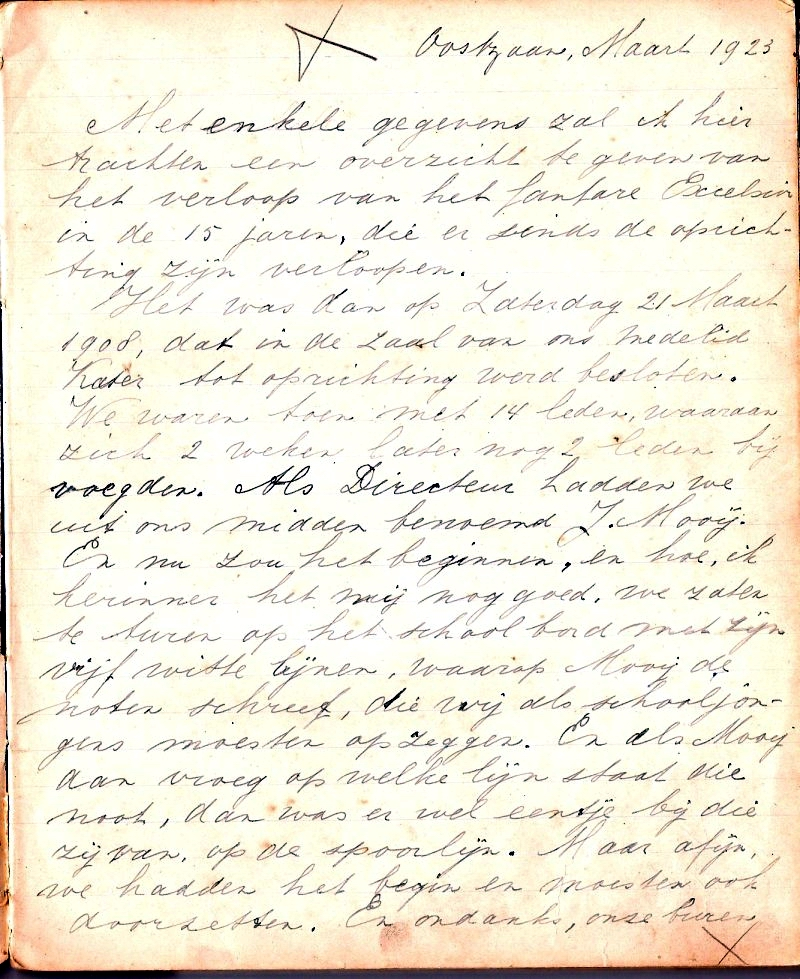 Oostzaan, Maart 1923
Met enkele gegevens zal ik hier
trachten een overzicht te geven van
het verloop van het fanfare Excelsior
in de 15 jaren, die er sinds de oprich-
ting zijn verloopen.
Het was dan op Zaterdag 21 Maart
1908, dat in de zaal van ons medelid
Kater tot oprichting werd besloten.
We waren toen met 14 leden, waaraan
zich 2 weken later nog 2 leden bij
voegden. Als Directeur hadden we
uit ons midden benoemd J. Mooij.
En nu zou het beginnen, en hoe, ik
herinner het mij nog goed, we zaten
te turen op het schoolbord met zijn
vijf witte lijnen, waarop Mooij de
noten schreef, die wij als schooljon-
gens moesten opzeggen. En als Mooij
dan vroeg op welke lijn staat die
noot, dan was er wel eentje bij die
zij van, op de spoorlijn. Maar afijn,
we hadden het begin en moesten ook
doorzetten. En ondanks, onze buren